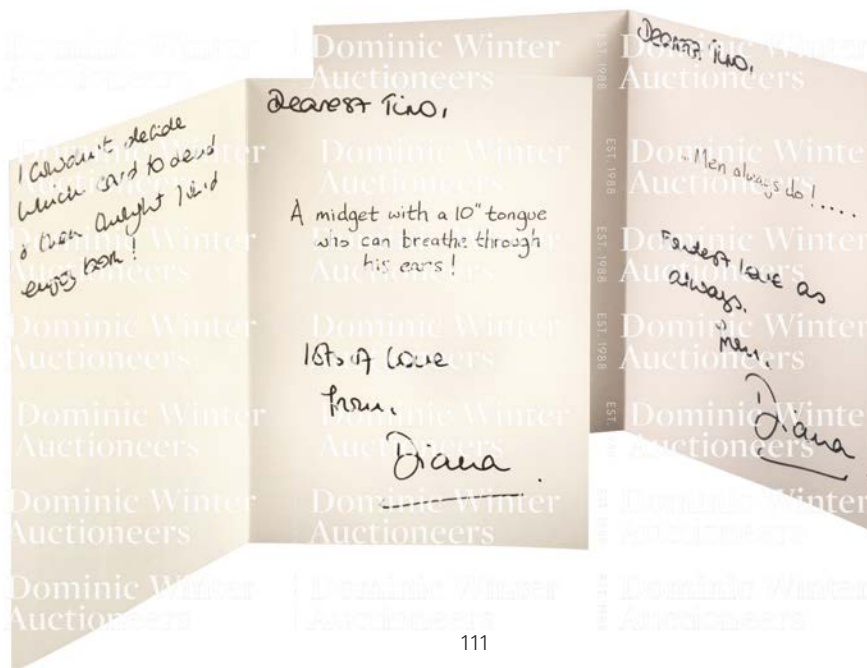 I couldn't decide
which card to send
& then thought
enjoy both!
Dearest Tino,
A midget with a 10" tongue
who can breathe through
his ears!
lots of love
from,
Diana
Dearest Tino,
..Men always do!.....
Fondest love as
always,
from,
Diana
Dominic Winter
Auctioneers
EST. 1988
111